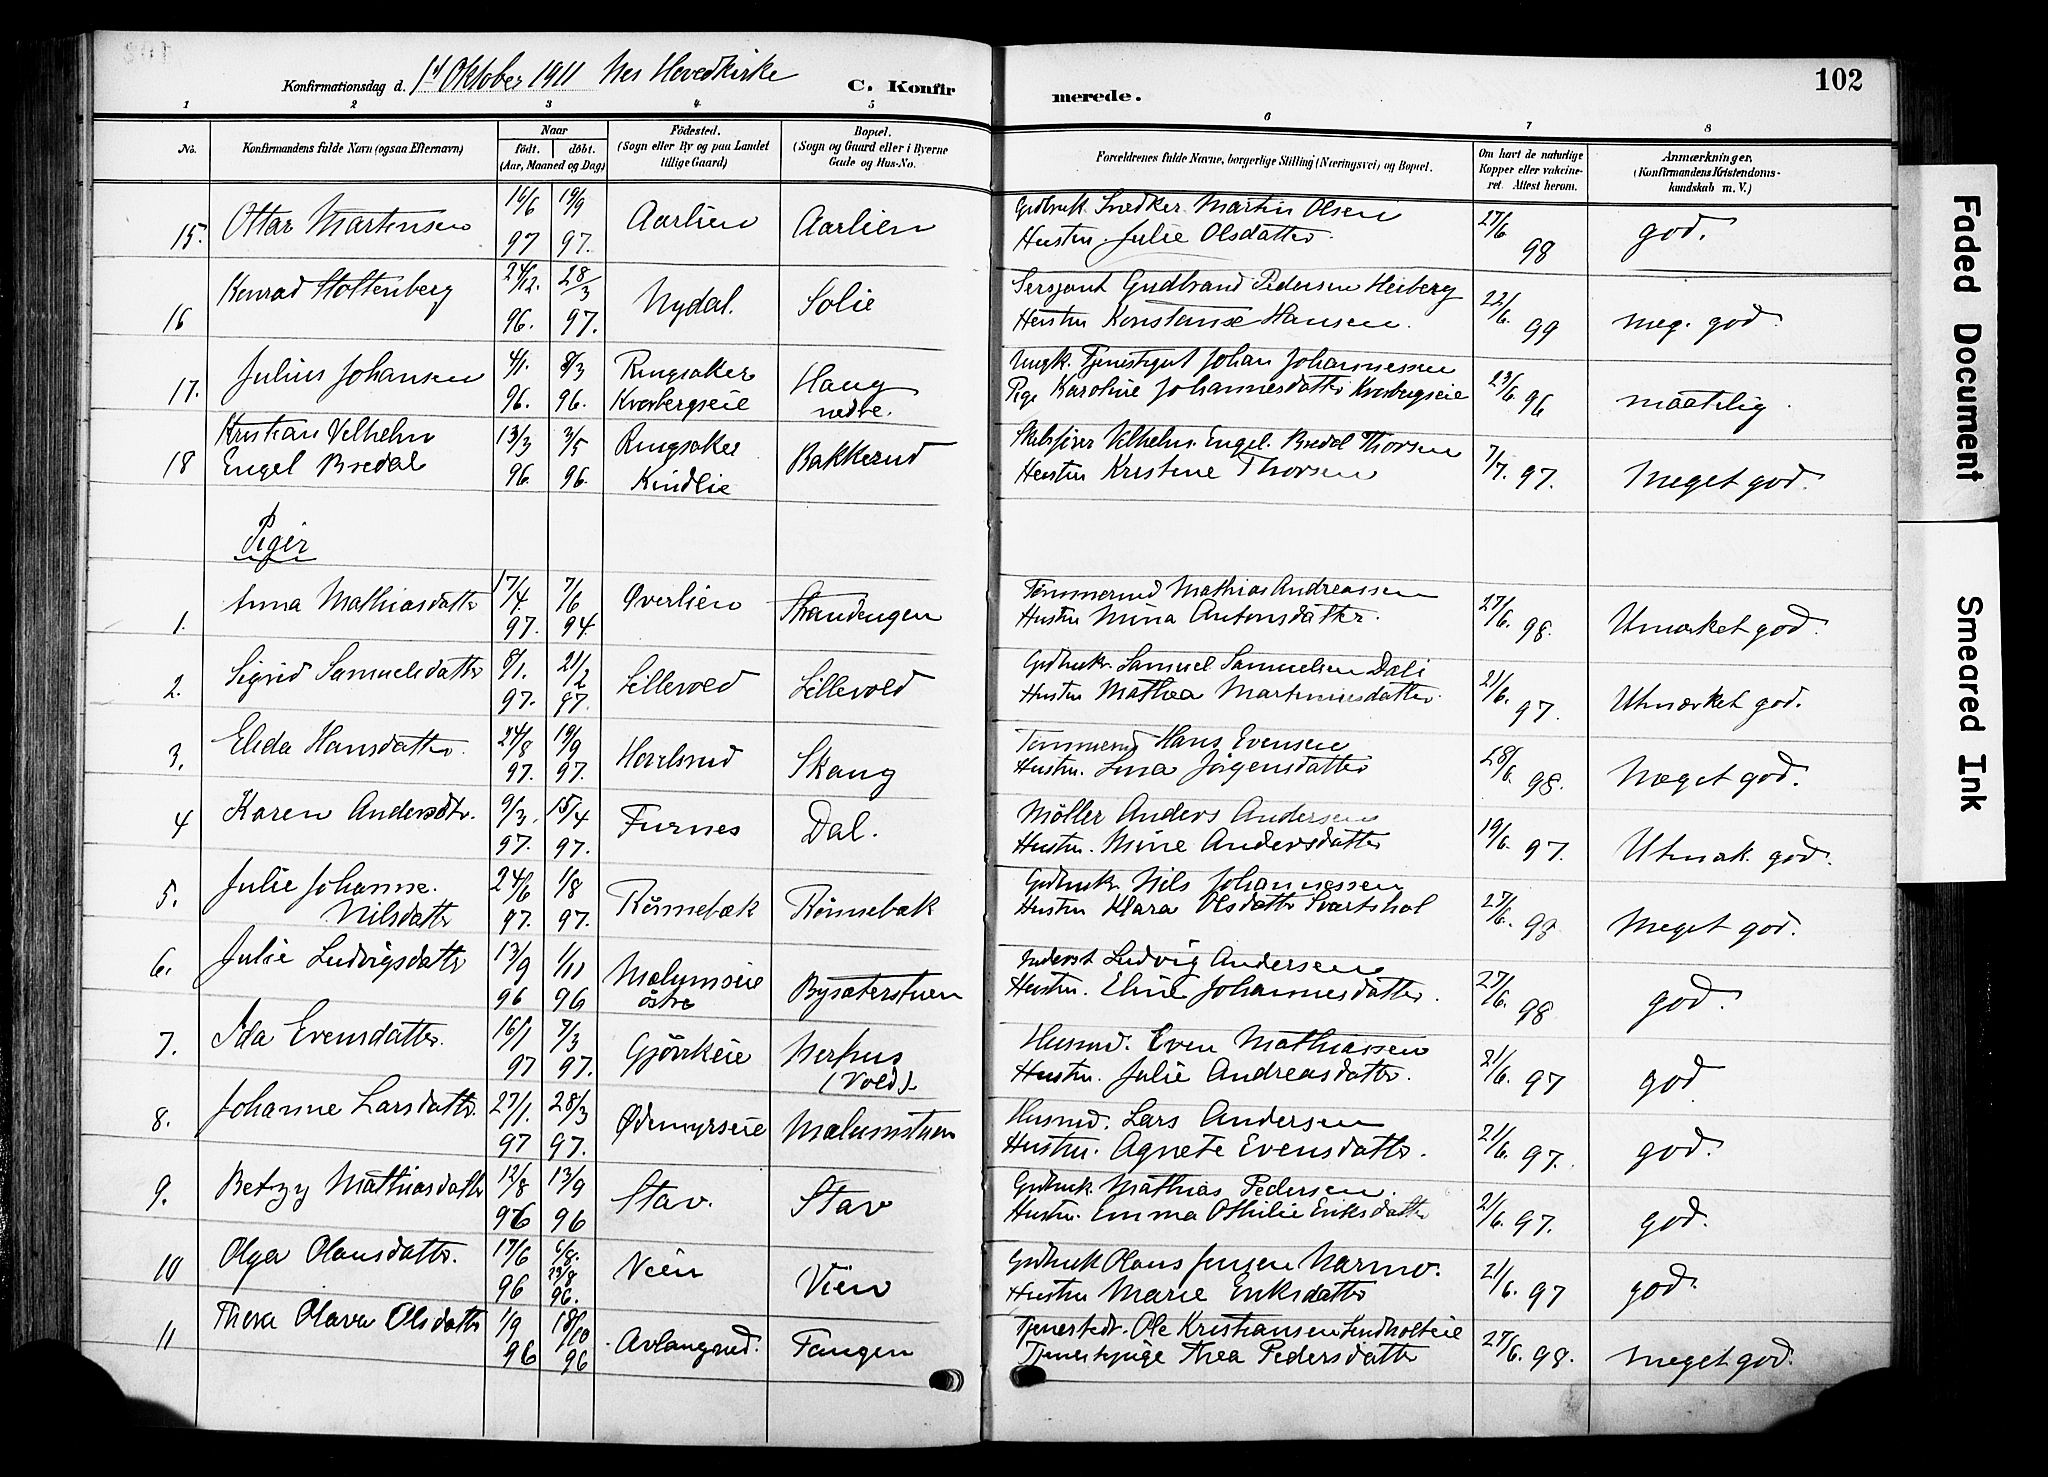 102
Konfirmationsdag d. 1ste Oktober 1911 Nes Hovedkirke C. Konfirmerede.
1 2 3 4 5 6 7 8
No. Konfirmandens fulde Navn (ogsaa Efternavn) Naar födt. döbt. (Aar, Maaned og Dag) Födested. (Sogn eller By og paa Landet tillige Gaard) Bopæl. (Sogn og Gaard eller i Byerne Gade og Hus-No. Forældrenes fulde Navne, borgerlige Stilling (Næringsvei) og Bopæl. Om havt de naturlige Kopper eller vaccineret. Attest herom. Anmærkninger. (Konfirmandens Kristendomskundskab m. V.)
15. Ottar Martinsen 16/6 97 19/9 97. Aarlien Aarlien Grdbruk. Snedker Martin Olsen
Hustru Julie Olsdatter. 27/6 98 god.
16 Konrad Stoltenberg 24/12. 96. 28/3 97. Nydal. Solie Sersjant Gudbrand Pedersen Heiberg
Hustru Konstanse Hansen. 22/6. 99 meg. god.
17. Julius Johansen 4/1. 96. 8/3 96. Ringsaker Kvarbergseie Haug nedre. Ungk. Tjenestegut Johan Johannessen
Pige Karoline Johannesdatter Kvarbergseie 23/6 96 maatelig.
18 Kristian Vilhelm Engel Bredal 13/3 96. 3/5 96. Ringsaker Kindlie Bakkerud Vilhelm Engel Bredal Thorsen
Hustru Kristine Thorsen 7/7. 97. Meget god.
Piger
1. Anna Mathiasdatter 17/4. 97. 7/6 94. Øverlien Strandengen Tømmermd Mathias Andreassen
Hustru Mina Antonsdatter. 27/6. 98. Utmærket god.
2. Sigrid Samuelsdatter 8/1. 97. 21/2 97. Lillevold Lillevold Grdbruk. Samuel Samuelsen Dali
Hustru Mathea Martinusdatter. 21/6. 97. Utmærket god.
3. Elida Hansdatter. 24/8 97. 19/9 97. Skaug Tømmermd Hans Evensen
Hustru. Lina Jörgensdatter 28/6. 98. Meget god.
4 Karen Andersdtr. 9/3. 97. 15/4 97. Furnes Dal. Möller Anders Andersen
Hustru. Mine Andersdatter 19/6. 97. Utmærk. god.
5. Julie Johanne. Nilsdatter 24/6 97. 1/8 97. Rönnebæk Rönnebæk Grdbruk. Nils Johannessen
Hustru Klara Olsdatter Svartshol 27/6. 98 Meget god.
6. Julie Ludvigsdatter 13/9 96 1/11 96 Mælumseie östre Bysæterstuen Inderst Ludvig Andersen
Hustru. Eline Johannesdatter. 27/6. 98 god.
7. Ida Evensdatter. 16/1 97 7/3 97. Gjörkeie Nerhus (Vold). Husmd. Even Mathiassen
Hustru. Julie Andreasdatter. 21/6. 97 god
8. Johanne Larsdatter. 27/1. 97 28/3 97. Ødemyrseie Mælumstuen Husmd. Lars Andersen
Hustru. Agnete Evensdatter. 21/6. 97. god.
9. Betzy Mathiasdatter 12/8 96 13/9 96 Stav. Stav Grdbruk. Mathias Pedersen.
Hustru. Emma Othilie Eriksdatter 21/6. 97. god.
10 Olga Olausdatter. 17/6 96 6/8. 23/8 96. Veien Vien Grdbruk Olaus Jensen Narmo.
Hustru Marie Eriksdatter 21/6. 97 god.
11 Thea Olava Olsdatter 1/9 96 18/10 96 Avlangrud. Tangen Tjenestedr. Ole Kristiansen Lindholteie
Tjenestepige Thea Pedersdatter 27/6. 98. meget god.
Faded Document
Smeared Ink